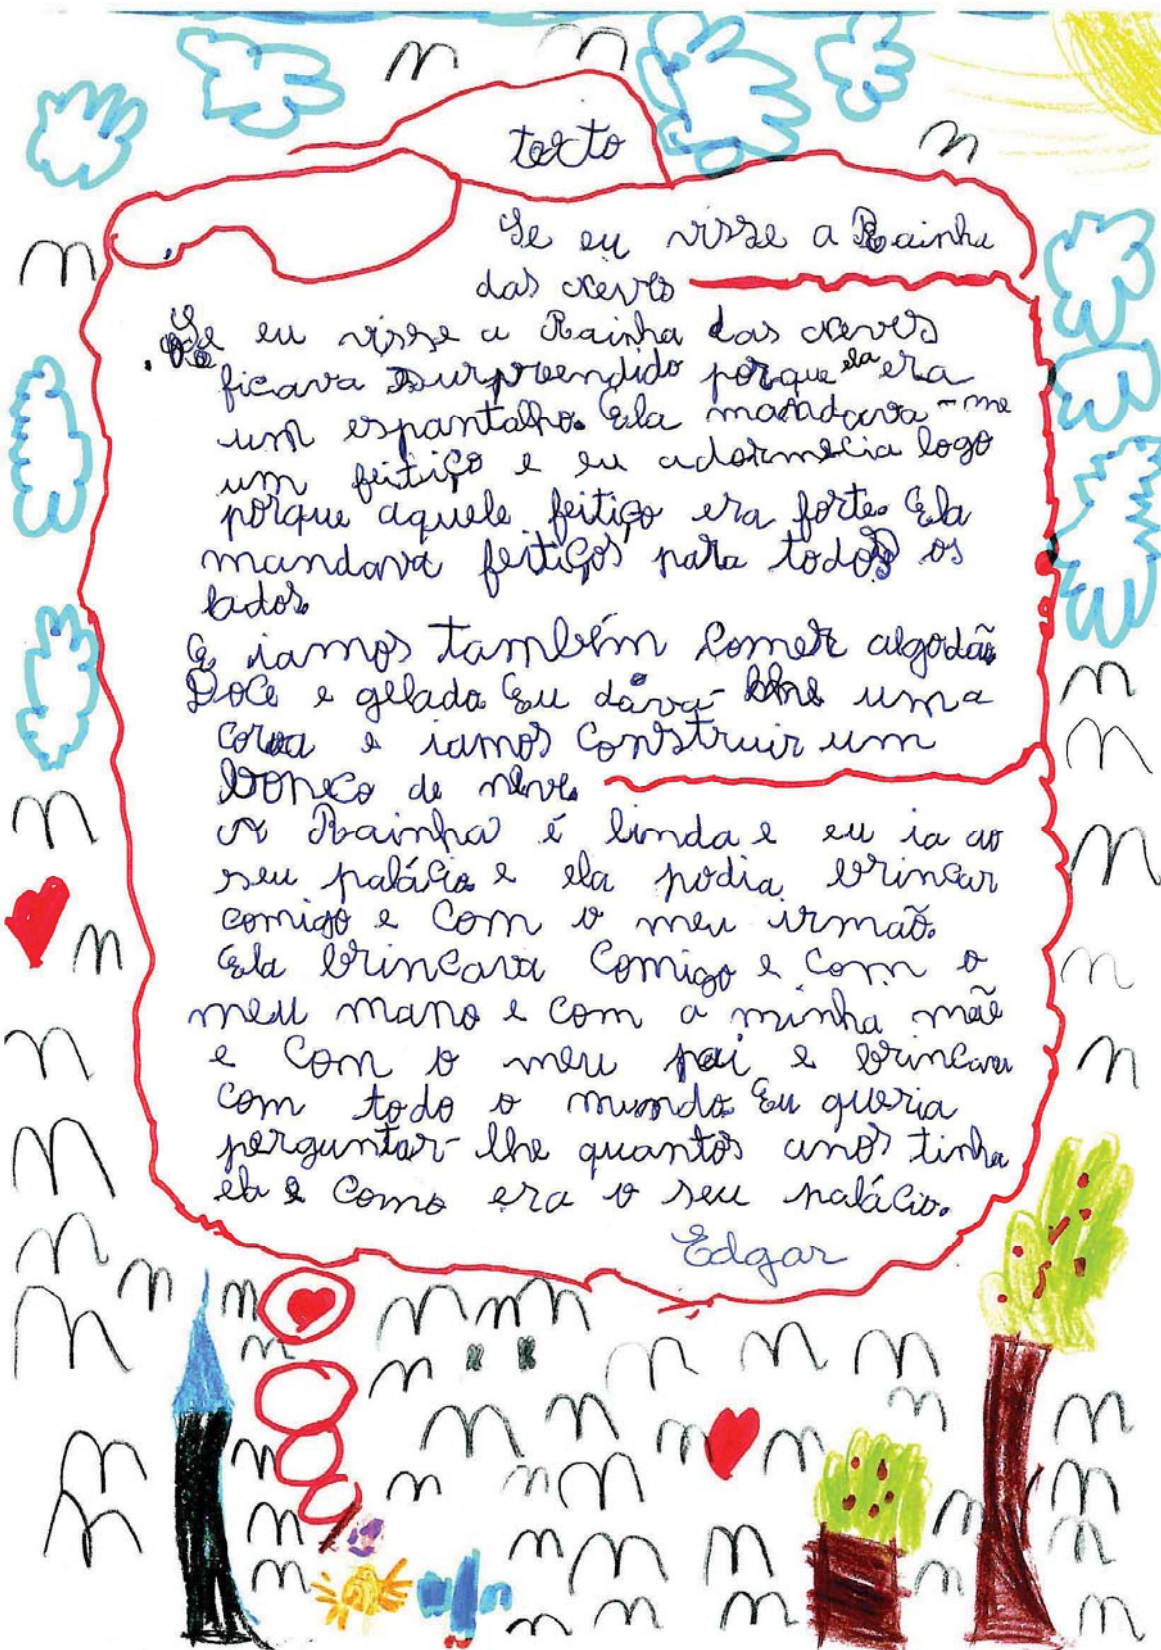 texto
Se eu visse a Rainha
das neves
Se eu visse a Rainha das neves
ficava surpreendido porque ela era
um espantalho. Ela mandava-me
um feitiço e eu adormecia logo
porque aquele feitiço era forte. Ela
mandava feitiços para todos os
lados.
E iamos também comer algodão
Doce e gelado Eu dava-lhe uma
coroa e iamos construir um
boneco de neve.
A Rainha é linda e eu ia ao
seu palácio e ela podia brincar
comigo e com o meu irmão.
Ela brincava comigo e com o
meu mano e com a minha mãe
e com o meu pai e brincava
com todo o mundo. Eu queria
perguntar-lhe quantos anos tinha
ela e como era o seu palácio.
Edgar